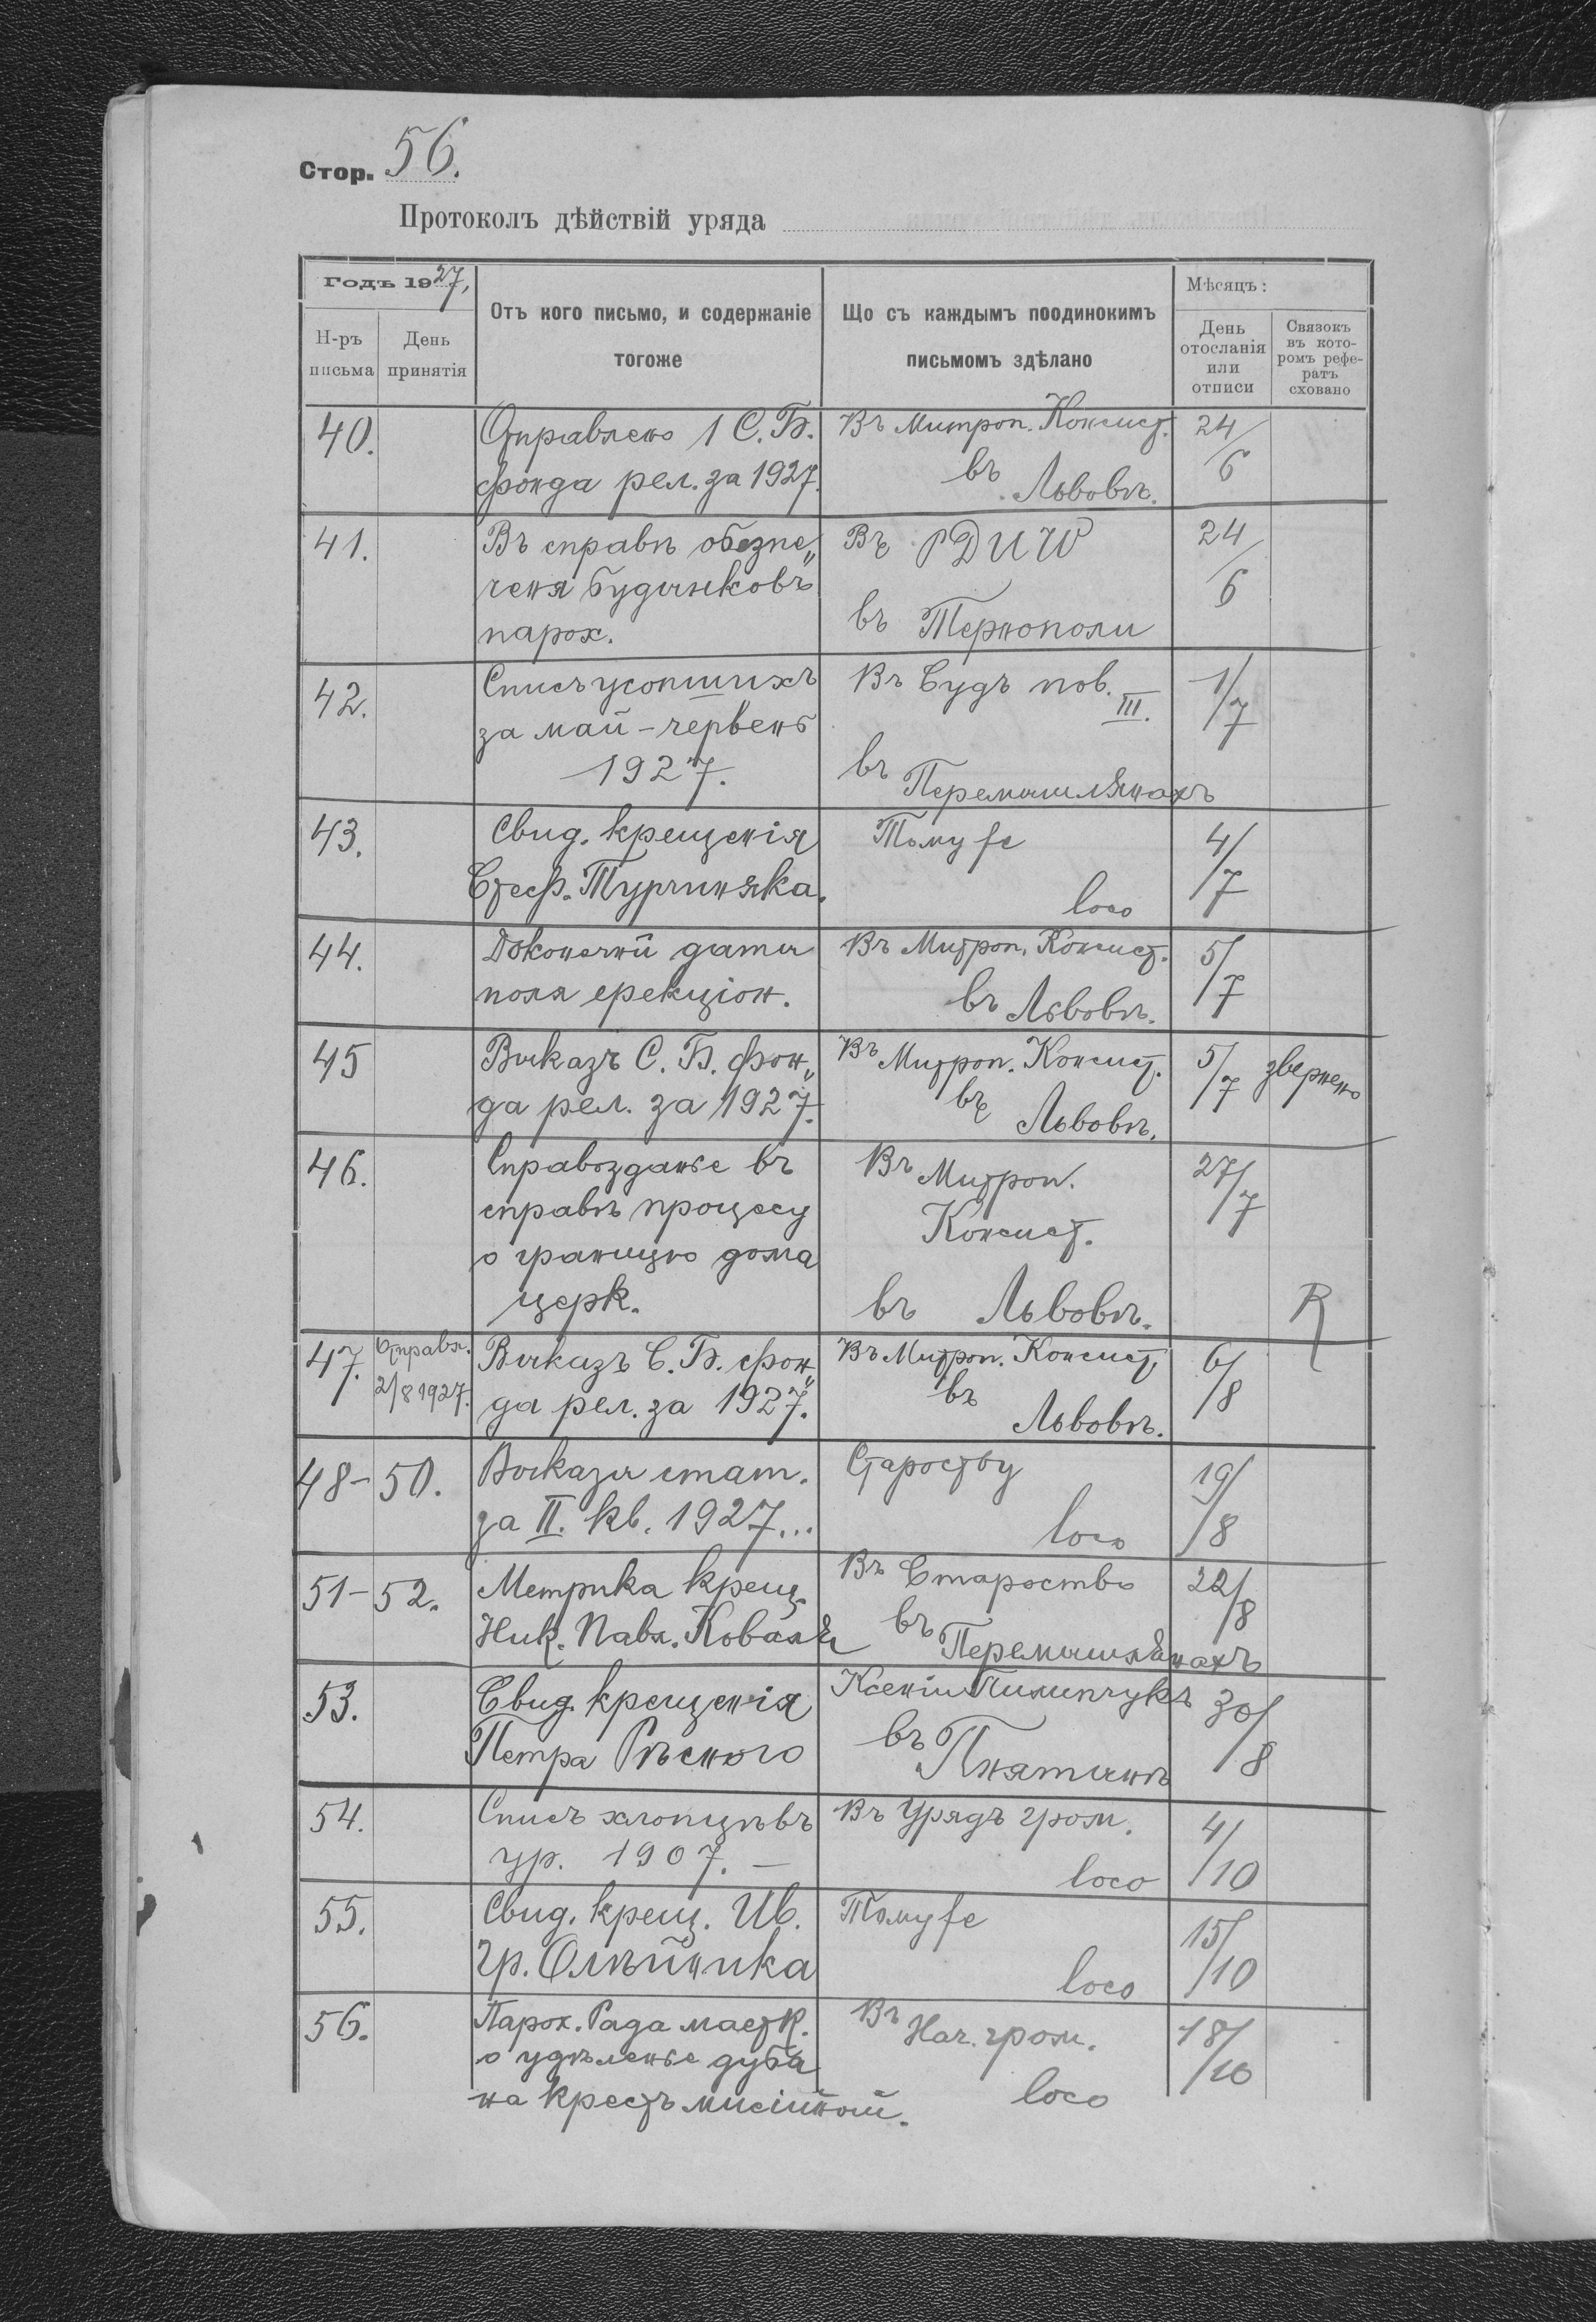 Стор. 56.
Протоколъ дѣйствій уряда
Годъ 1927,
Н-ръ письма
День принятія
Отъ кого письмо, и содержаніе тогоже
Що съ каждымъ поодинокимъ письмомъ здѣлано
Мѣсяцъ:
День отосланія или отписи
Связокъ въ которомъ рефератъ сховано
40. Отправлено 1 С. Б. Въ Митроп. Консист. 24/6
фонда рел. за 1927. въ Львовѣ.
41. Въ справѣ обезпе„ Въ PDUW 24/6
ченя будынковъ
парох. въ Тернополи
42. Списъ усопшихъ Въ Судъ пов. III. 1/7
за май – червень
1927. въ Перемышлянахъ
43. Свид. крещенія Тому же 4/7
Стеф. Турчиняка. loco
44. Доконечнй даты Въ Митроп. Консист. 5/7
поля ерекціон. въ Львовѣ.
45 Выказъ С. Б. фон„ Въ Митроп. Консист. 5/7 звернено
да рел. за 1927. въ Львовѣ.
46. Справозданье въ Въ Митроп. 27/7
справѣ процесу Консист.
о границю дома
церк. въ Львовѣ. R
47. Отправл. Выказъ С. Б. фон„ Въ Митроп. Консист. 6/8
2/8 1927. да рел. за 1927. въ Львовѣ.
48–50. Выказы стат. Староству 19/8
за II. кв. 1927... loco
51–52. Метрика крещ. Въ Староство 22/8
Ник. Павл. Коваля въ Перемышлянахъ
53. Свид. крещенія Ксеніи Пилипчукъ 30/8
Петра Рѣсного въ Пнятынѣ
54. Списъ хлопцѣвъ Въ Урядъ гром. 4/10
ур. 1907. – loco
55. Свид. крещ. Ив. Тому же 15/10
Гр. Олѣйника loco
56. Парох. Рада Въ Нач. гром. 18/10
о удѣленье дуба
на крестъ мисійной. loco